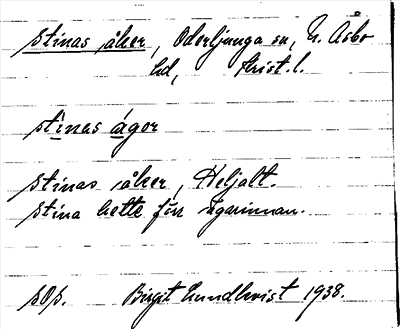 stinas åker, Oderljunga sn, N. Åsbo
hd, Krist. l.
stinas ágor
stinas åker, Heljalt.
Stina hette förr ägarinnan.
sOp. Birgit Lundkvist 1938.